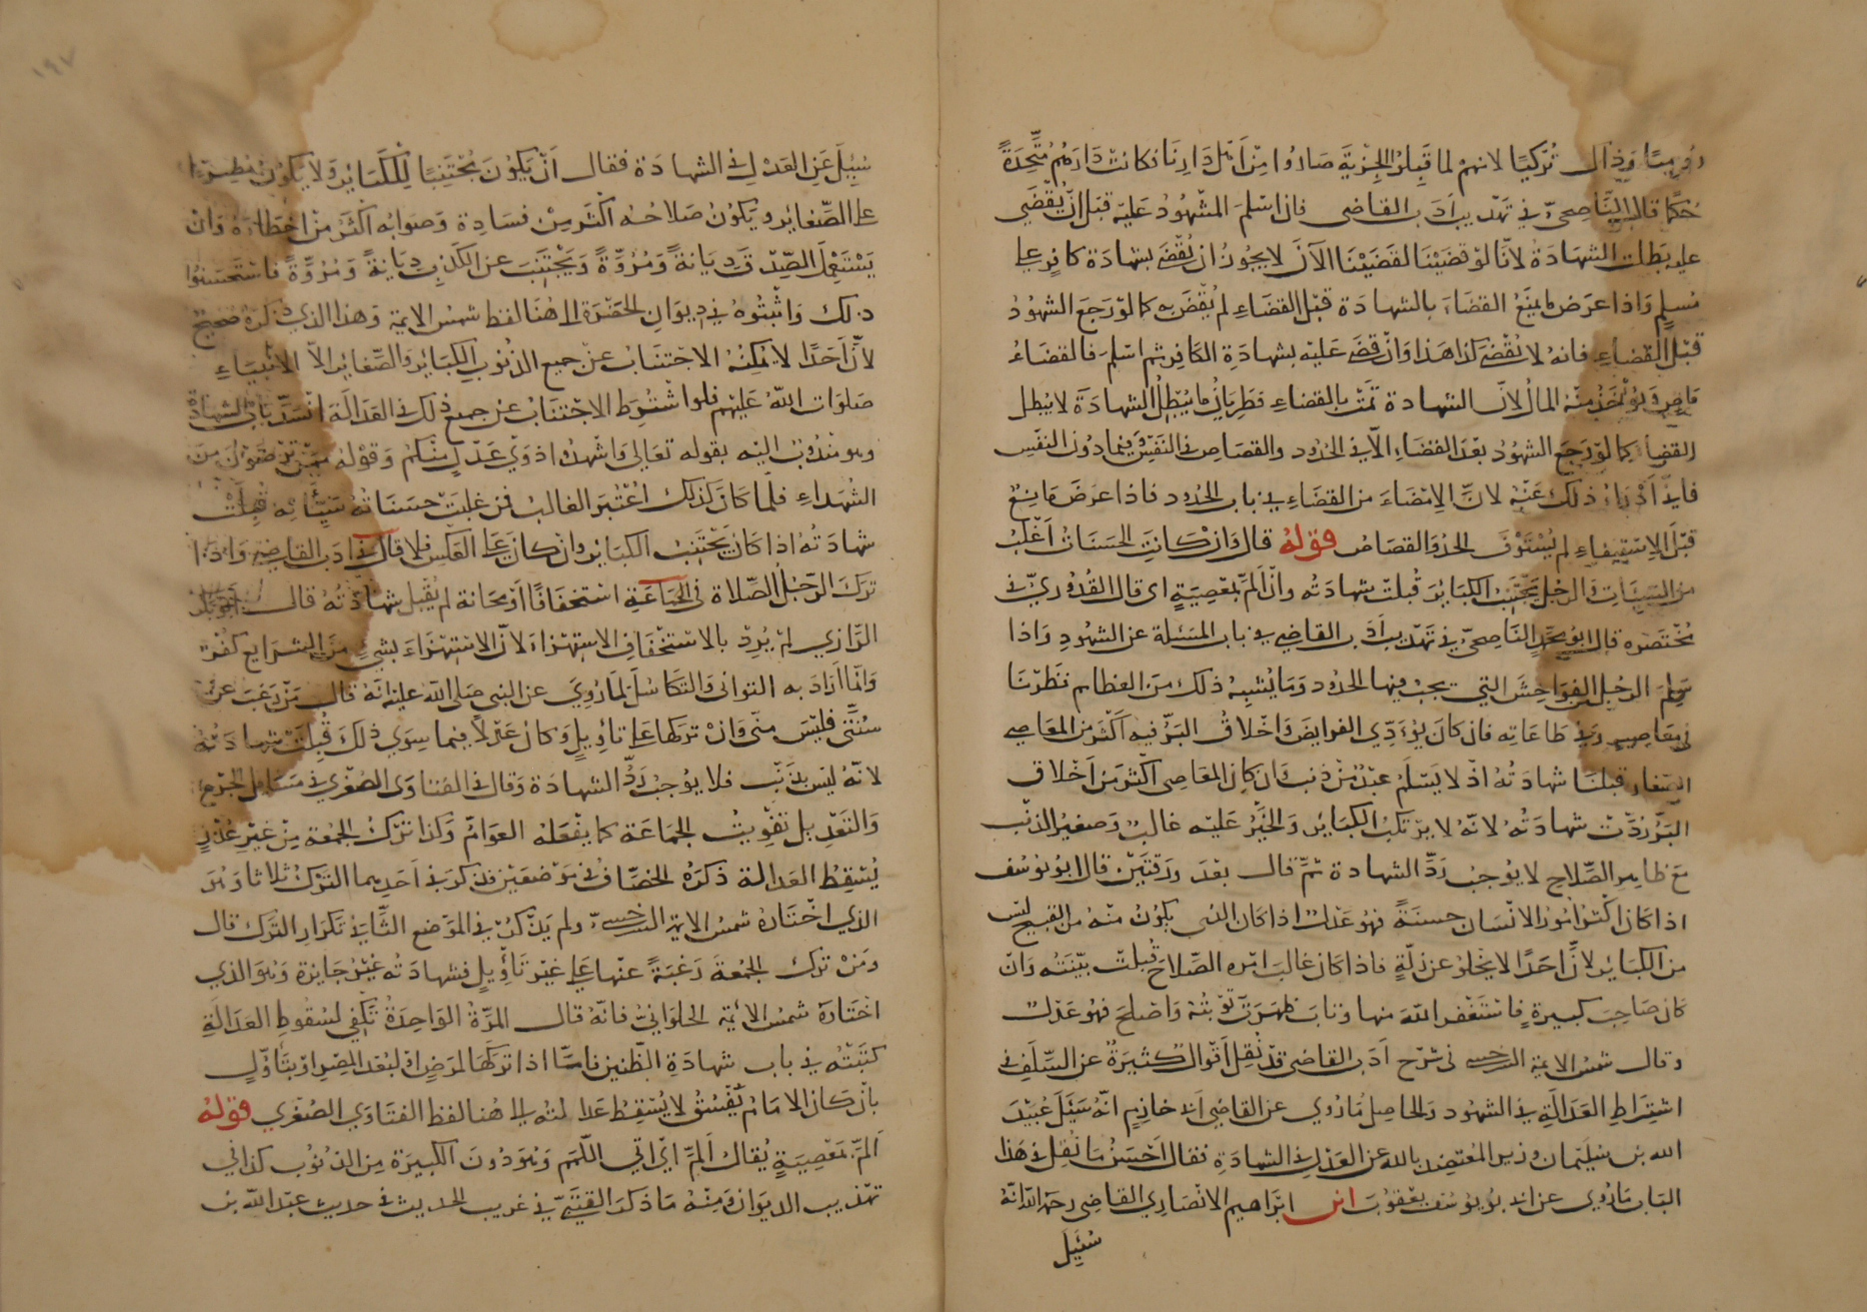 او روميا وذاك تركيا لانهم لما قبلوا الجزية صاروا من اهل دارنا فكانت دارهم متحدة
حكما قال الناصحي في تهذيب ادب القاضي فان اسلم المشهود عليه قبل ان يقضي
عليه بطلت الشهادة لانا لو قضينا لقضينا الآن لا يجوز ان يقضى بشهادة كافر على
مسلم واذا عرض ما يمنع القضاء بالشهادة قبل القضاء لم يقض به كما لو رجع الشهود
قبل القضاء فانه لا يقضى كذا هذا وان قضى عليه بشهادة الكافر ثم اسلم فالقضاء
ماض ويؤخذ منه المال لان الشهادة تمت بالقضاء فطريان ما يبطل الشهادة لا يبطل
القضاء كما لو رجع الشهود بعد القضاء الا في الحدود والقصاص في النفس وفيما دون النفس
فاني ادراء ذلك عنه لان الامضاء من القضاء في باب الحدود فاذا عرض مانع
قبل الاستيفاء لم يستوف الحد والقصاص قوله قال وان كانت الحسنات اغلب
من السيئات والرجل يجتنب الكبائر قبلت شهادته وان الم بمعصية اي قال القدوري في
مختصره قال ابو محمد الناصحي في تهذيب ادب القاضي في باب المسئلة عن الشهود واذا
سلم الرجل الفواحش التي يجب فيها الحدود وما يشبه ذلك من العظام نظرنا
في معاصيه وفي طاعاته فان كان يؤدي الفرايض واخلاق البر فيه اكثر من المعاصي
الصغار قبلنا شهادته اذ لا يسلم عبد من ذنب وان كان المعاصي اكثر من اخلاق
البر ردت شهادته لانه لا يرتكب الكبائر والخير عليه غالب وصغير الذنب
مع ظاهر الصلاح لا يوجب رد الشهادة ثم قال بعد ورقتين قال ابو يوسف
اذا كان اكثر امور الانسان حسنة فهو عدل اذا كان الذي يكون منه من القبيح ليس
من الكبائر لان احدا لا يخلو عن زلة فاذا كان غالب امره الصلاح قبلت بينته وان
كان صاحب كبيرة فاستغفر الله منها وتاب ظهرت توبته واصلح فهو عدل
وقال شمس الايمة السرخسي في شرح ادب القاضي قد نقل اقوال كثيرة عن السلف في
اشتراط العدالة في الشهود والحاصل ما روي عن القاضي ابي خازم انه سئل عبيد
الله بن سليمان وزير المعتضد بالله عن العدل في الشهادة فقال احسن ما نقل في هذا
الباب ما روي عن ابي يوسف يعقوب ابن ابراهيم الانصاري القاضي رحمه الله انه
سئل
سئل عن العدل في الشهادة فقال ان يكون مجتنبا للكبائر ولا يكون مصرا
على الصغاير ويكون صلاحه اكثر من فسادة وصوابه اكثر من اخطائه وان
يستعمل الصدق ديانة ومروة ويجتنب عن الكذب ديانة ومروة فاستحسنوا
ذلك واثبتوه في ديوان الحضرة الى هنا لفظ شمس الايمة وهذا الذي ذكره صحيح
لان احدا لا يمكنه الاجتناب عن جميع الذنوب الكبائر والصغاير الا الانبياء
صلوات الله عليهم فلو اشترط الاجتناب عن جميع ذلك في العدالة انسد باب الشهادة
وهو مندوب اليه بقوله تعالى واشهدوا ذوي عدل منكم وقوله ممن ترضون من
الشهداء فلما كان كذلك اعتبر الغالب فمن غلبت حسناته سيئاته قبلت
شهادته اذا كان يجتنب الكبائر وان كان على العكس فلا قال في ادب القاضي واذا
ترك الرجل الصلاة في الجماعة استخفافا او مجانة لم يقبل شهادته قال ابو بكر
الرازي لم يرد بالاستخفاف الاستهزاء لان الاستهزاء بشيء من الشرايع كفر
وانما اراد به التواني والتكاسل لما روي عن النبي صلى الله عليه انه قال من رغب عن
سنتي فليس مني وان تركها على تاويل وكان عدلا فيما سوى ذلك قبلت شهادته
لانه ليس بذنب فلا يوجب رد الشهادة وقال في الفتاوى الصغرى في مسائل الجرح
والتعديل تفويت الجماعة كما يفعله العوام وكذا ترك الجمعة من غير عذر
يسقط العدالة ذكره الخصاف في موضعين فذكر في احديهما الترك ثلاثا وهو
الذي اختاره شمس الايمة السرخسي ولم يذكر في الموضع الثاني تكرار الترك قال
ومن ترك الجمعة رغبة عنها على غير تأويل فشهادته غير جايزة وهو الذي
اختاره شمس الائمة الحلواني فانه قال المرة الواحدة تكفي لسقوط العدالة
كتبته في باب شهادة الظنين فاما اذا تركها لمرض او لبعد المصر او بتأول
بان كان الامام يفسق لا يسقط عدالته الى هنا لفظ الفتاوى الصغرى قوله
الم بمعصية يقال الم اي اتى اللمم وهو دون الكبيرة من الذنوب كذا في
تهذيب الديوان ومنه ما ذكر القتبي في غريب الحديث في حديث عبد الله بن